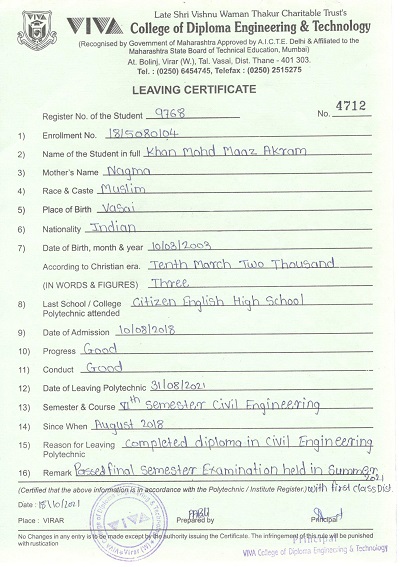 Late Shri Vishnu Waman Thakur Charitable Trust's
VIVA College of Diploma Engineering & Technology
(Recognised by Government of Maharashtra Approved by A.I.C.T.E. Delhi & Affiliated to the
Maharashtra State Board of Technical Education, Mumbai)
At. Bolinj, Virar (W.), Tal. Vasai, Dist. Thane - 401 303.
Tel. : (0250) 6454745, Telefax : (0250) 2515275
LEAVING CERTIFICATE
Register No. of the Student 9768 No. 4712
1) Enrollment No. 1815080104
2) Name of the Student in full Khan Mohd Maaz Akram
3) Mother's Name Nagma
4) Race & Caste Muslim
5) Place of Birth Vasai
6) Nationality Indian
7) Date of Birth, month & year 10/03/2003
According to Christian era. Tenth March Two Thousand
(IN WORDS & FIGURES) Three
8) Last School / College Citizen English High School
Polytechnic attended
9) Date of Admission 10/08/2018
10) Progress Good
11) Conduct Good
12) Date of Leaving Polytechnic 31/08/2021
13) Semester & Course VIth Semester Civil Engineering
14) Since When August 2018
15) Reason for Leaving completed diploma in Civil Engineering
Polytechnic
16) Remark Passed final Semester Examination held in Summer 2021
(Certified that the above information is in accordance with the Polytechnic / Institute Register.) with First Class Dist.
Date : 18/10/2021
Place : VIRAR Prepared by Principal
Principal
No Changes in any entry is to be made except by the authority issuing the Certificate. The infringement of this rule will be punished
with rustication
VIVA College of Diploma Engineering & Technology